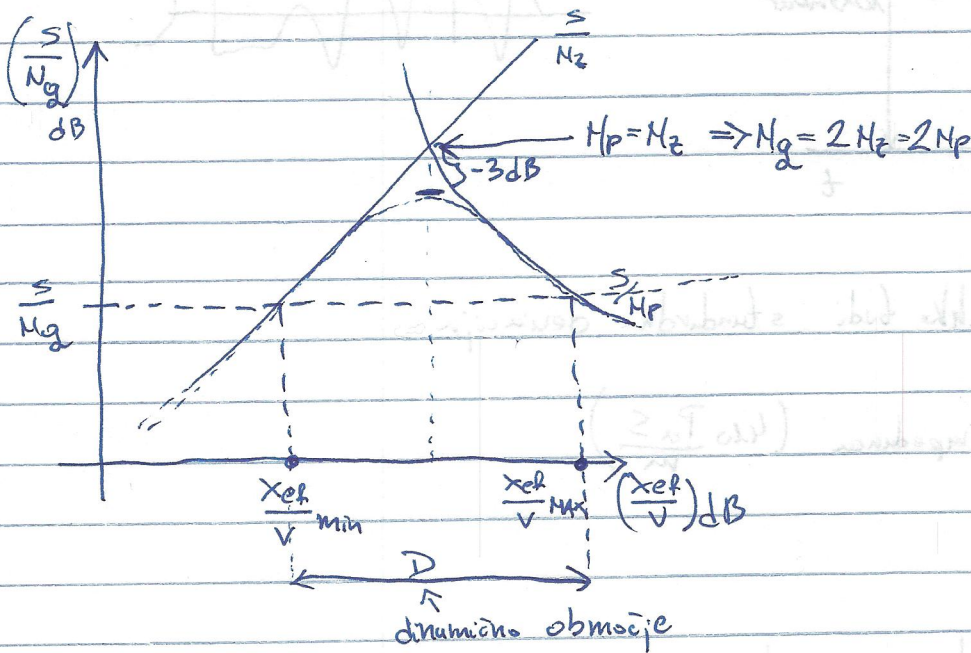 (S/Ng) dB
S/Nz
Np = Nz ⇒ Ng = 2 Nz = 2 Np
-3dB
S/Ng
S/Np
xef/V min
xef/V MAX
(xef/V) dB
D
dinamično območje